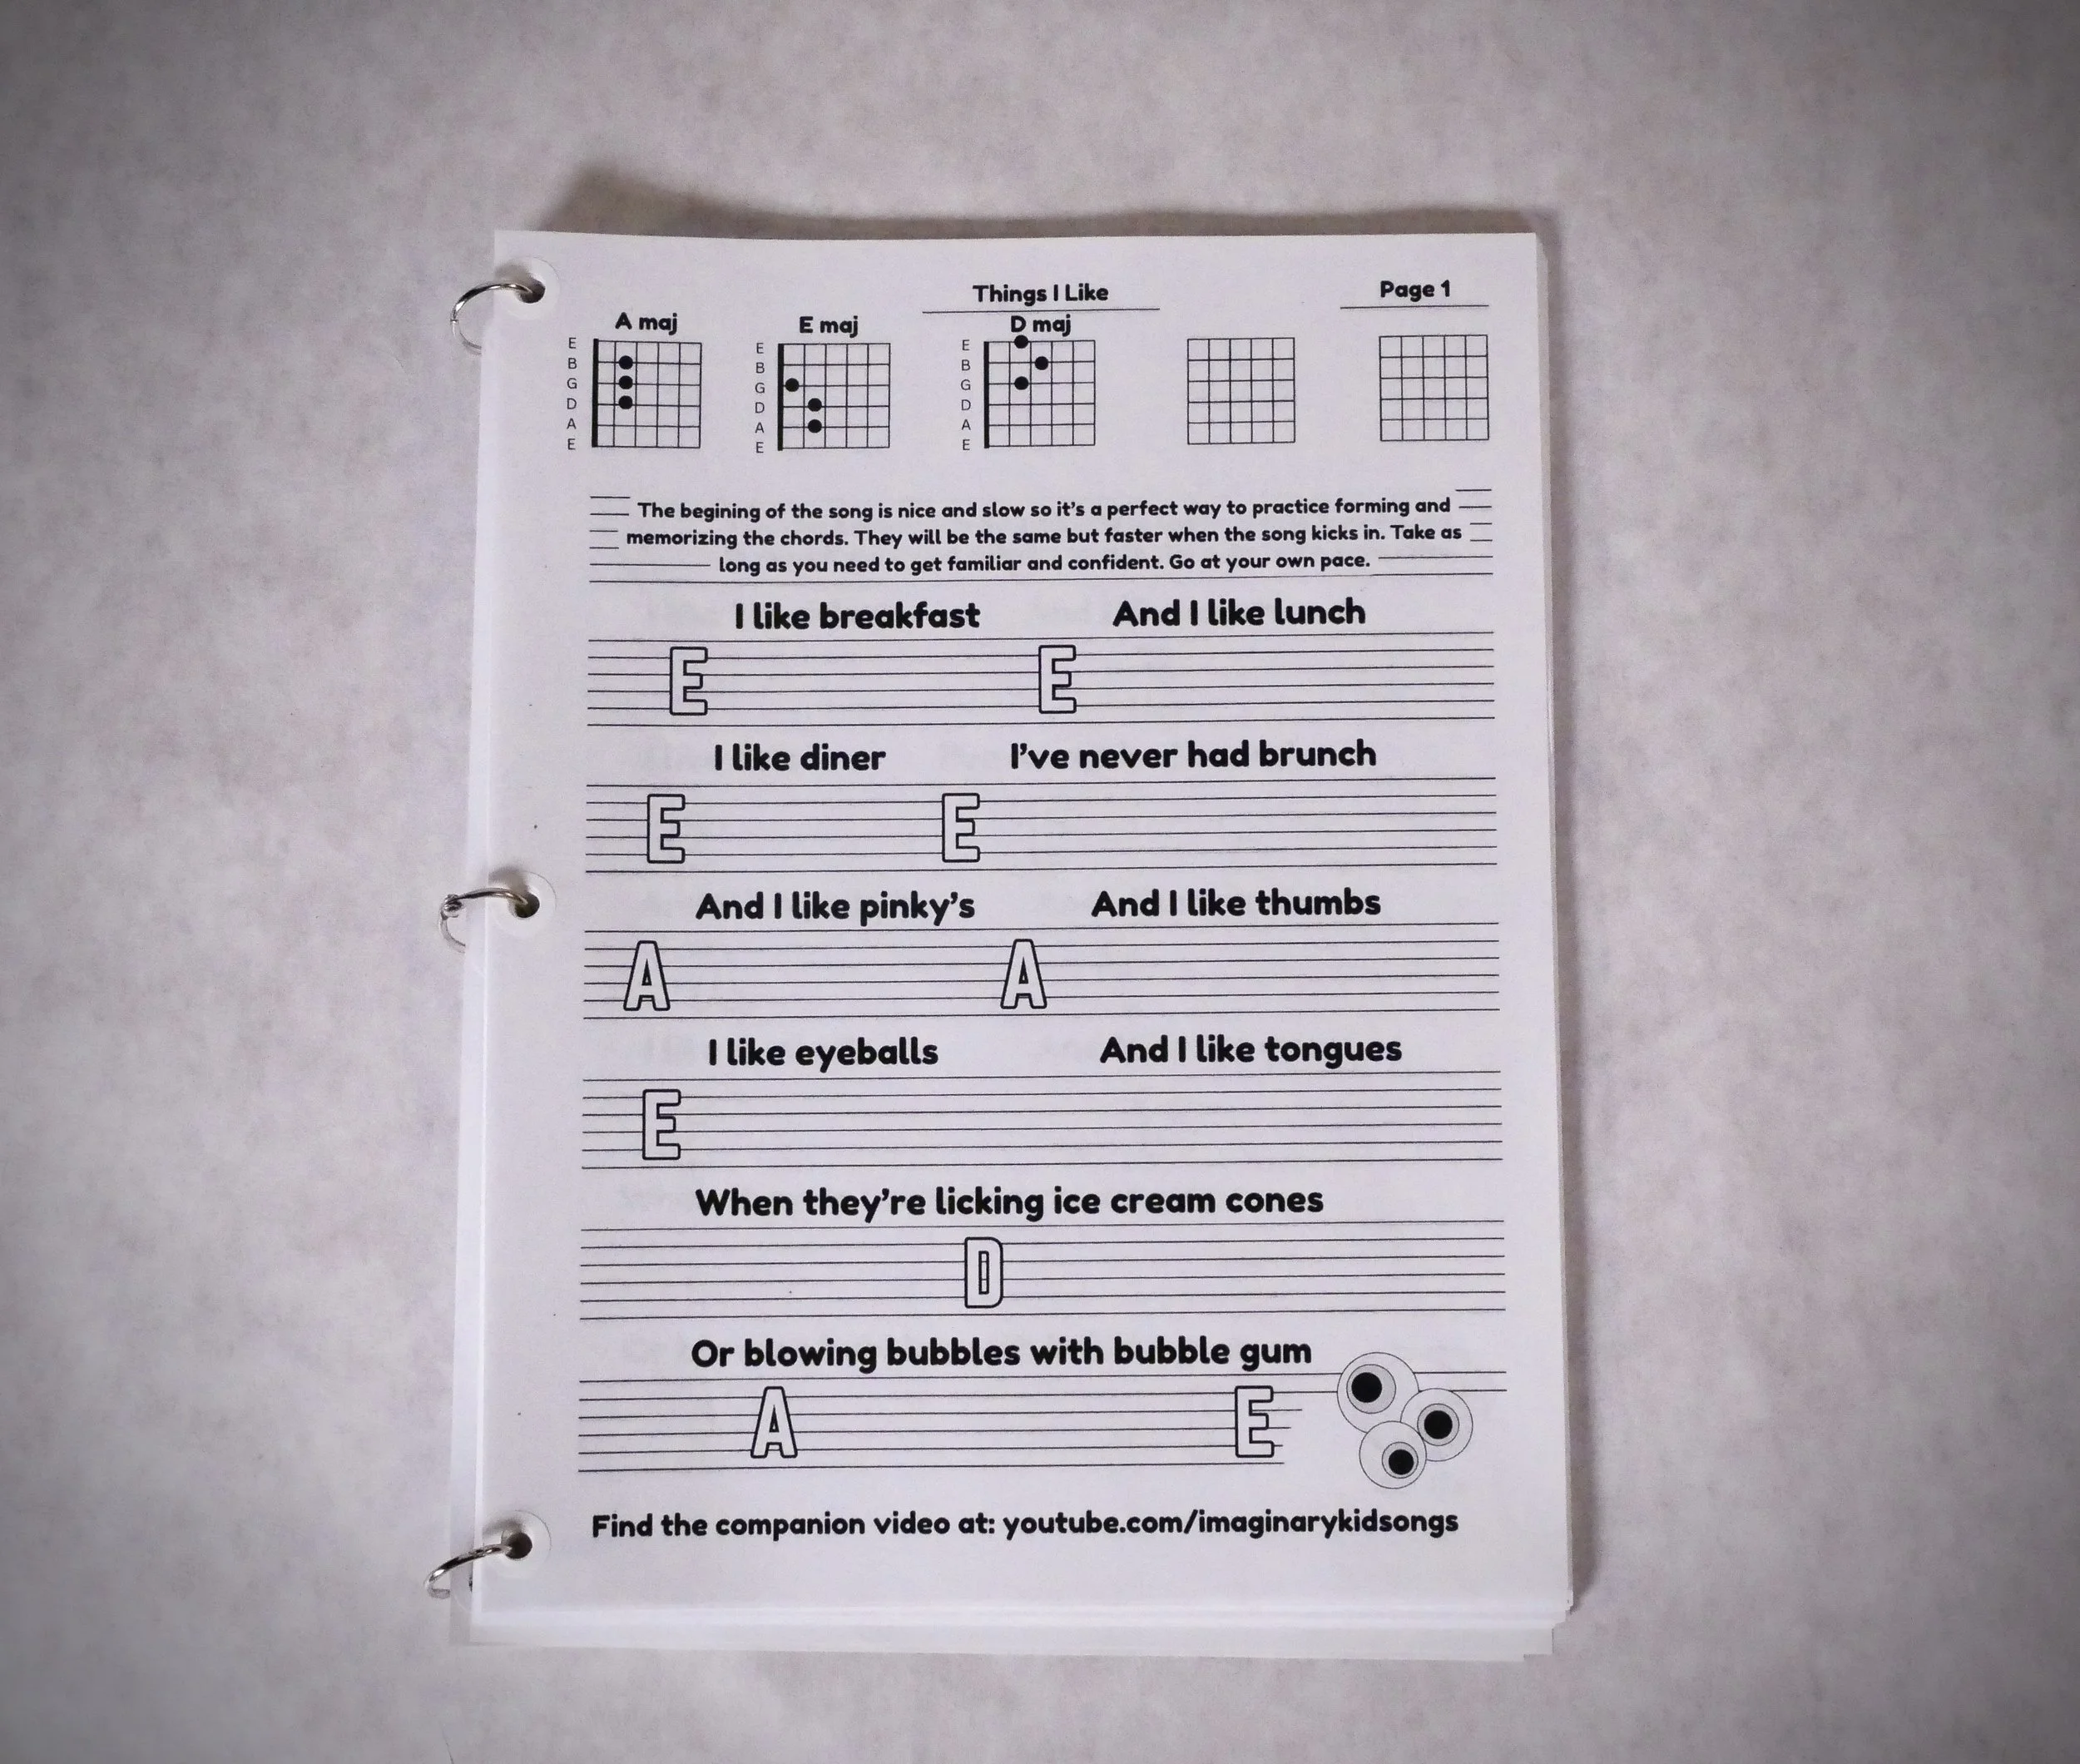 Things I Like
Page 1
A maj
E maj
D maj
E
B
G
D
A
E
E
B
G
D
A
E
E
B
G
D
A
E
The begining of the song is nice and slow so it's a perfect way to practice forming and
memorizing the chords. They will be the same but faster when the song kicks in. Take as
long as you need to get familiar and confident. Go at your own pace.
I like breakfast And I like lunch
E E
I like diner I've never had brunch
E E
And I like pinky's And I like thumbs
A A
I like eyeballs And I like tongues
E
When they're licking ice cream cones
D
Or blowing bubbles with bubble gum
A E
Find the companion video at: youtube.com/imaginarykidsongs